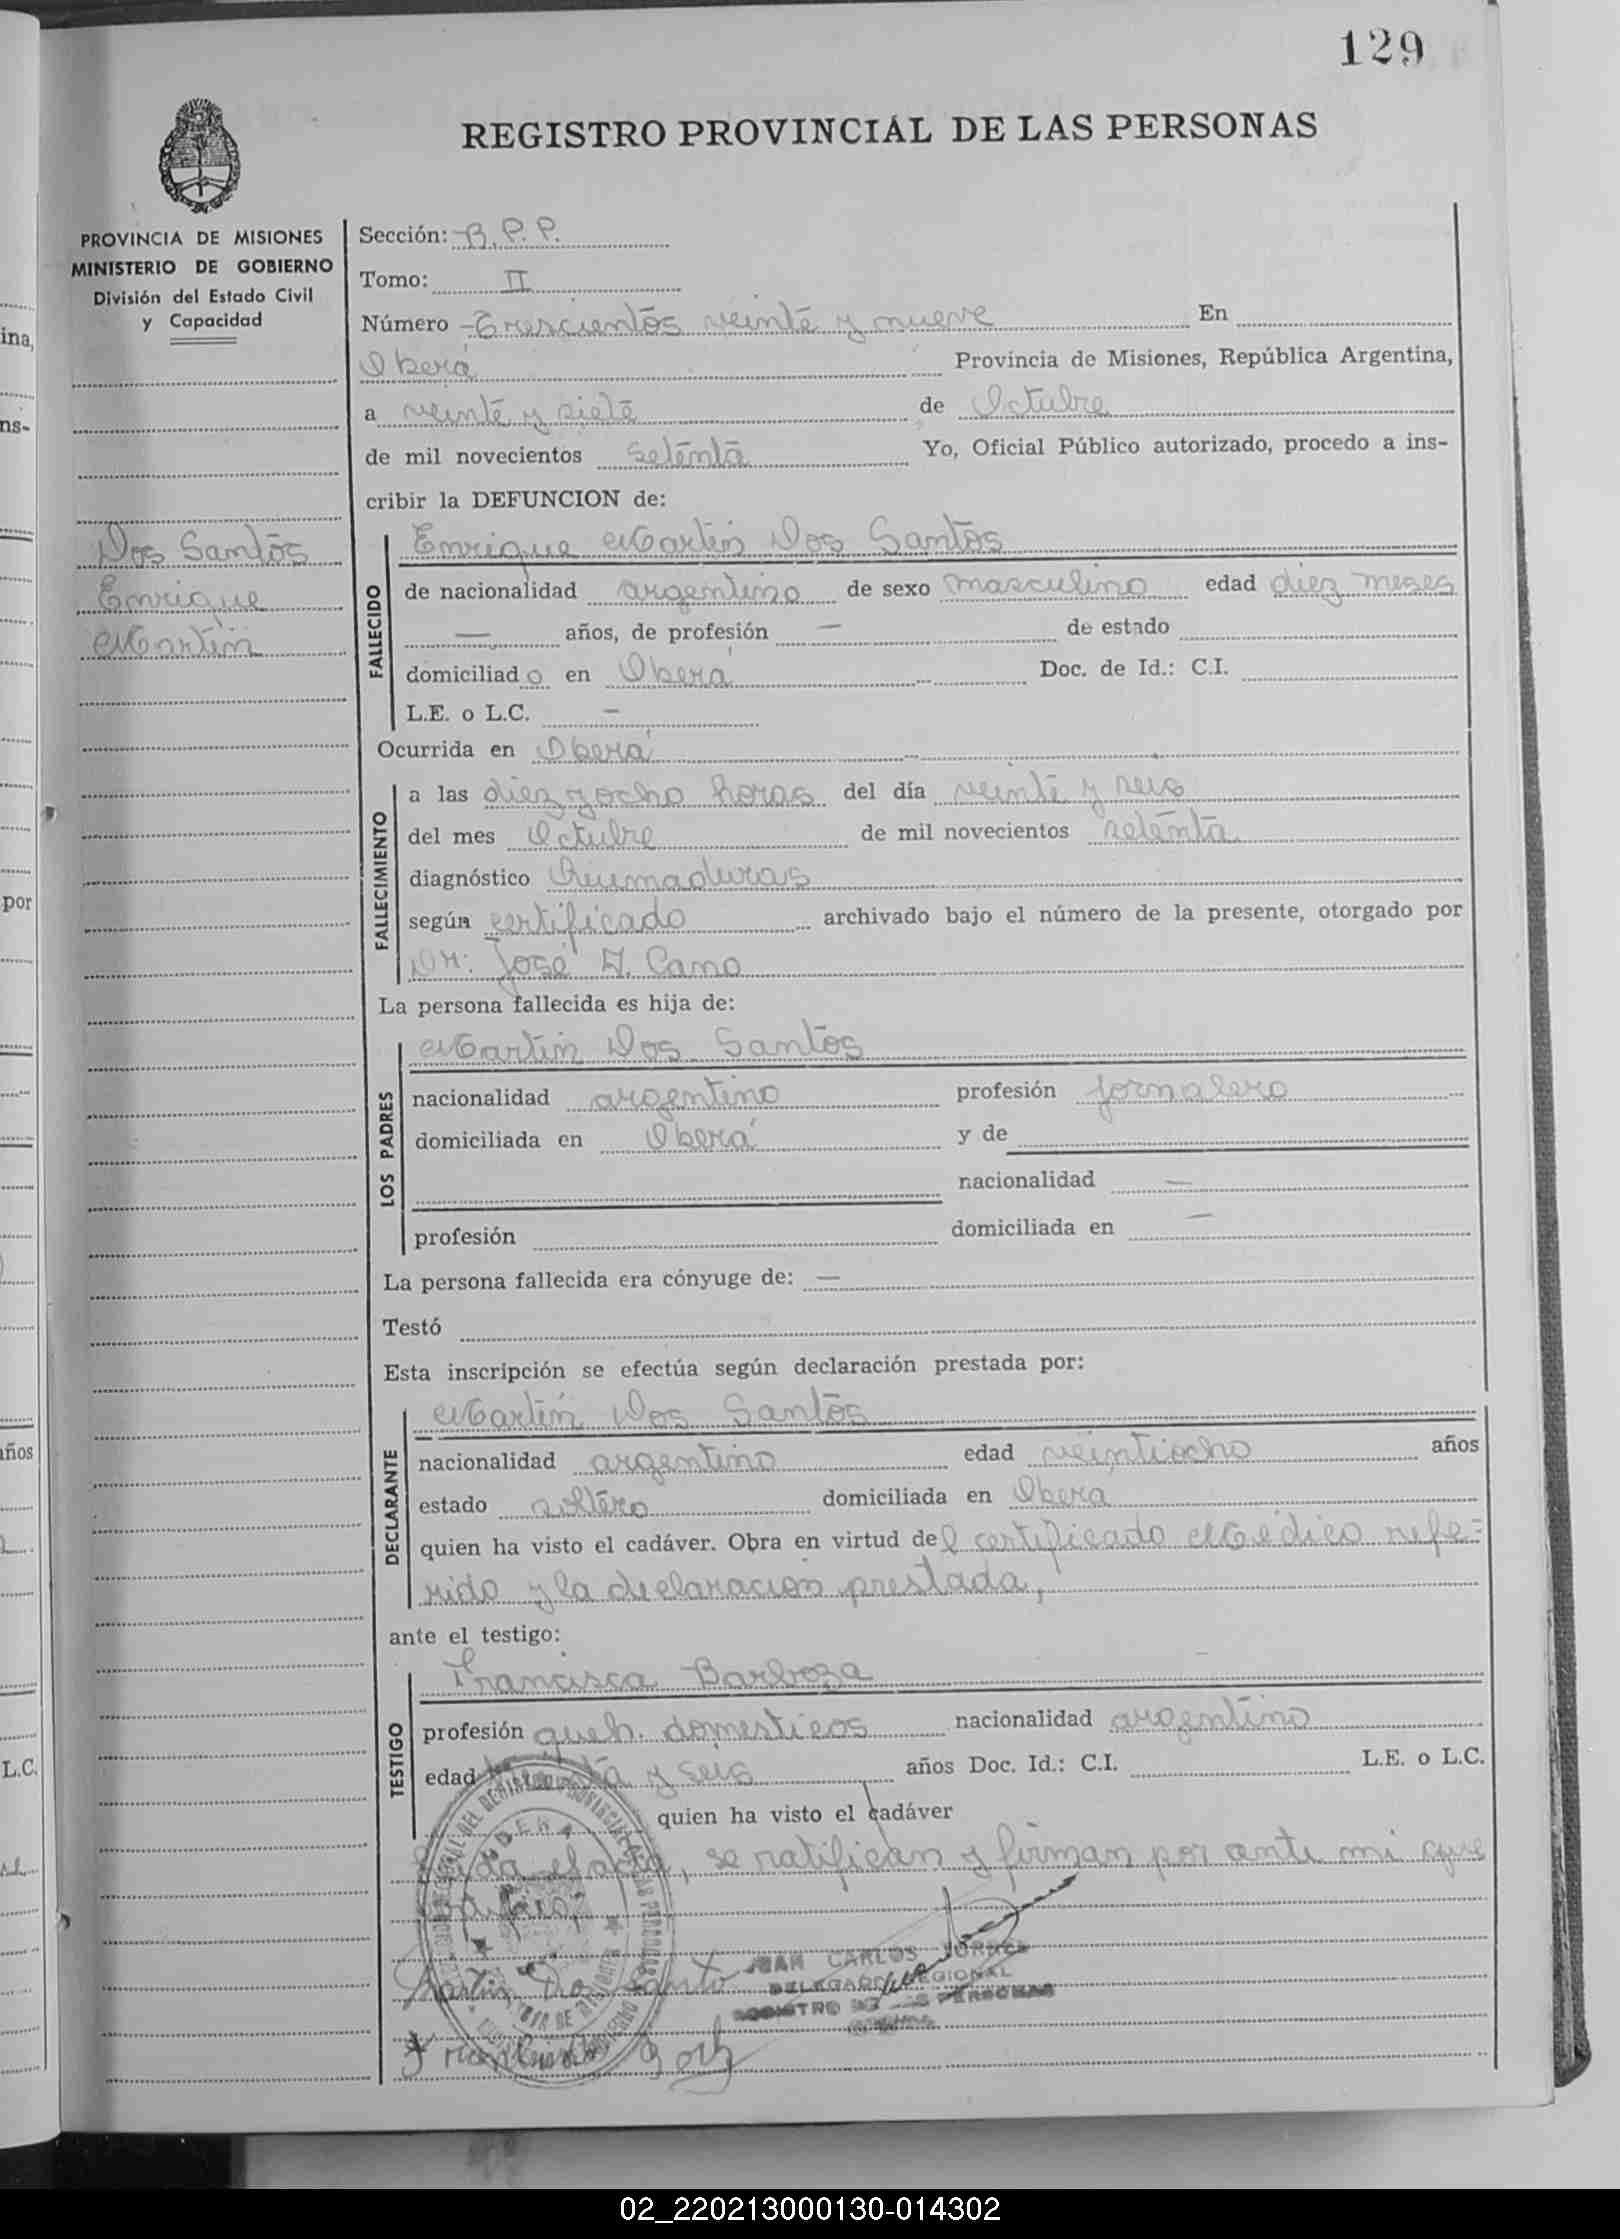 129
REGISTRO PROVINCIAL DE LAS PERSONAS
PROVINCIA DE MISIONES
MINISTERIO DE GOBIERNO
División del Estado Civil
y Capacidad
Dos Santos
Enrique
Martín
Sección: B.P.P.
Tomo: II
Número Trescientos veinte y nueve En
Oberá Provincia de Misiones, República Argentina,
a veinte y siete de Octubre
de mil novecientos setenta Yo, Oficial Público autorizado, procedo a ins-
cribir la DEFUNCION de:
FALLECIDO
Enrique Martín Dos Santos
de nacionalidad argentino de sexo masculino edad diez meses
— años, de profesión — de estado
domiciliado en Oberá Doc. de Id.: C.I.
L.E. o L.C. —
Ocurrida en Oberá
FALLECIMIENTO
a las diez y ocho horas del día veinte y seis
del mes Octubre de mil novecientos setenta
diagnóstico Quemaduras
según certificado archivado bajo el número de la presente, otorgado por
Dr: José A. Cano
La persona fallecida es hija de:
LOS PADRES
Martín Dos Santos
nacionalidad argentino profesión jornalero
domiciliada en Oberá y de
nacionalidad —
profesión domiciliada en —
La persona fallecida era cónyuge de: —
Testó
Esta inscripción se efectúa según declaración prestada por:
DECLARANTE
Martín Dos Santos
nacionalidad argentino edad veintiocho años
estado soltero domiciliada en Oberá
quien ha visto el cadáver. Obra en virtud del certificado Médico refe-
rido y la declaración prestada,
ante el testigo:
TESTIGO
Francisca Barboza
profesión queh. domesticos nacionalidad argentino
edad y seis años Doc. Id.: C.I. L.E. o L.C.
quien ha visto el cadáver
el acta, se ratifican y firman por ante mi que
Martin Do Santo
JUAN CARLOS
DELEGADO REGIONAL
REGISTRO DE LAS PERSONAS
ina,
ns-
por
años
L.C.
02_220213000130-014302